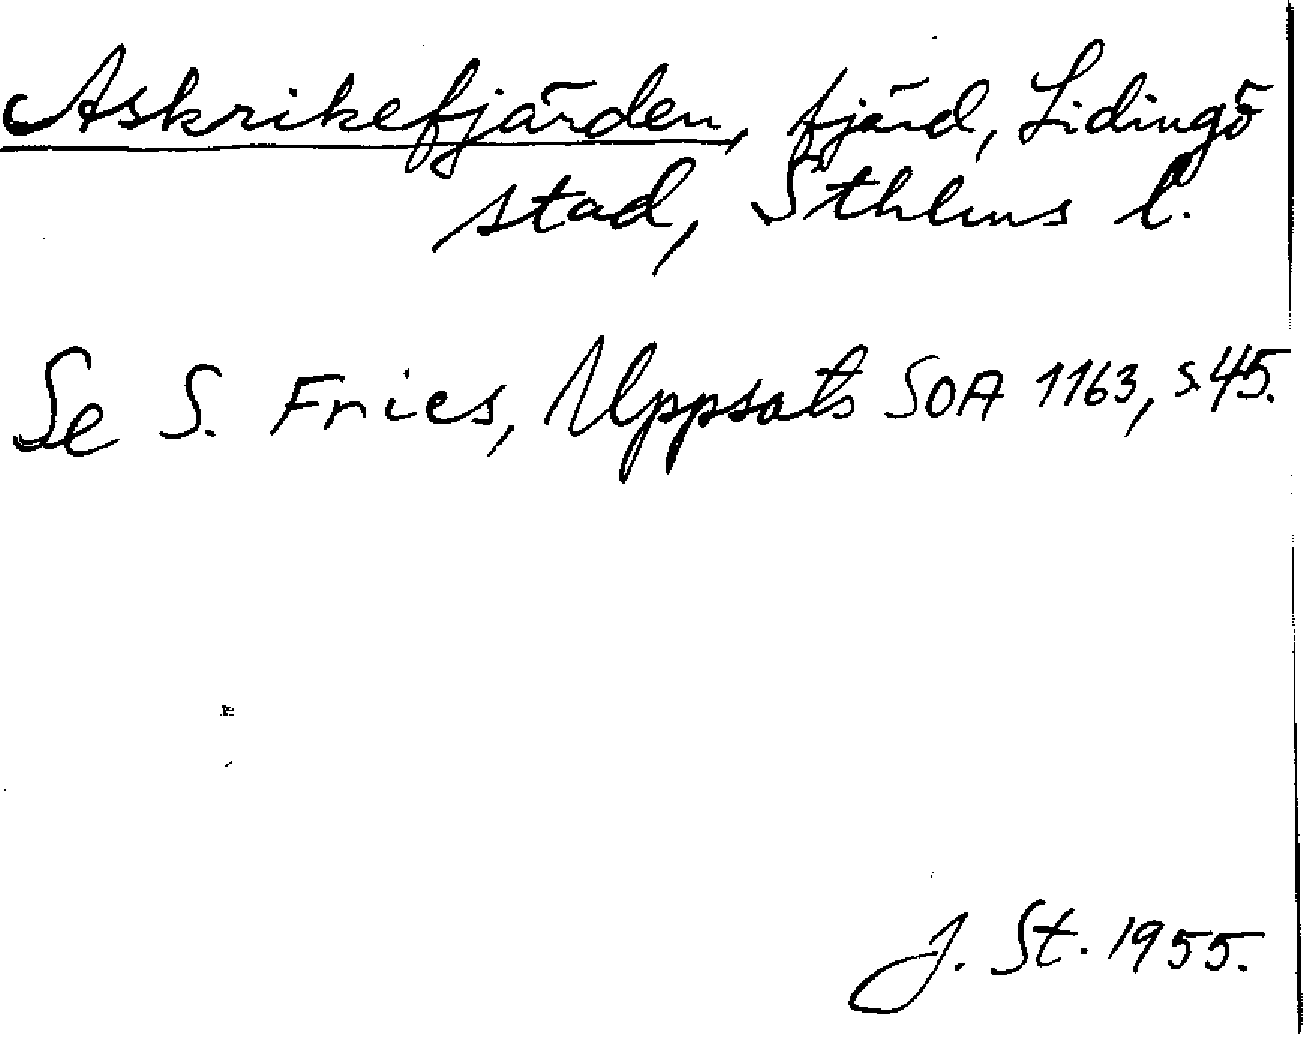 Askrikefjärden, fjärd, Lidingö
stad, Sthlms l.
Se S. Fries, Uppsats SOA 1163, s 45.
J. St. 1955.